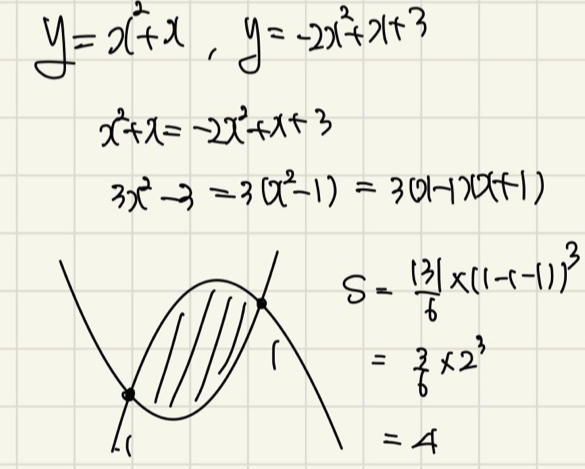 y=x²+x , y=-2x²+x+3
x²+x=-2x²+x+3
3x²-3=3(x²-1)=3(x-1)(x+1)
S=|3|/6×(1-(-1))³
=3/6×2³
=4
1
-1